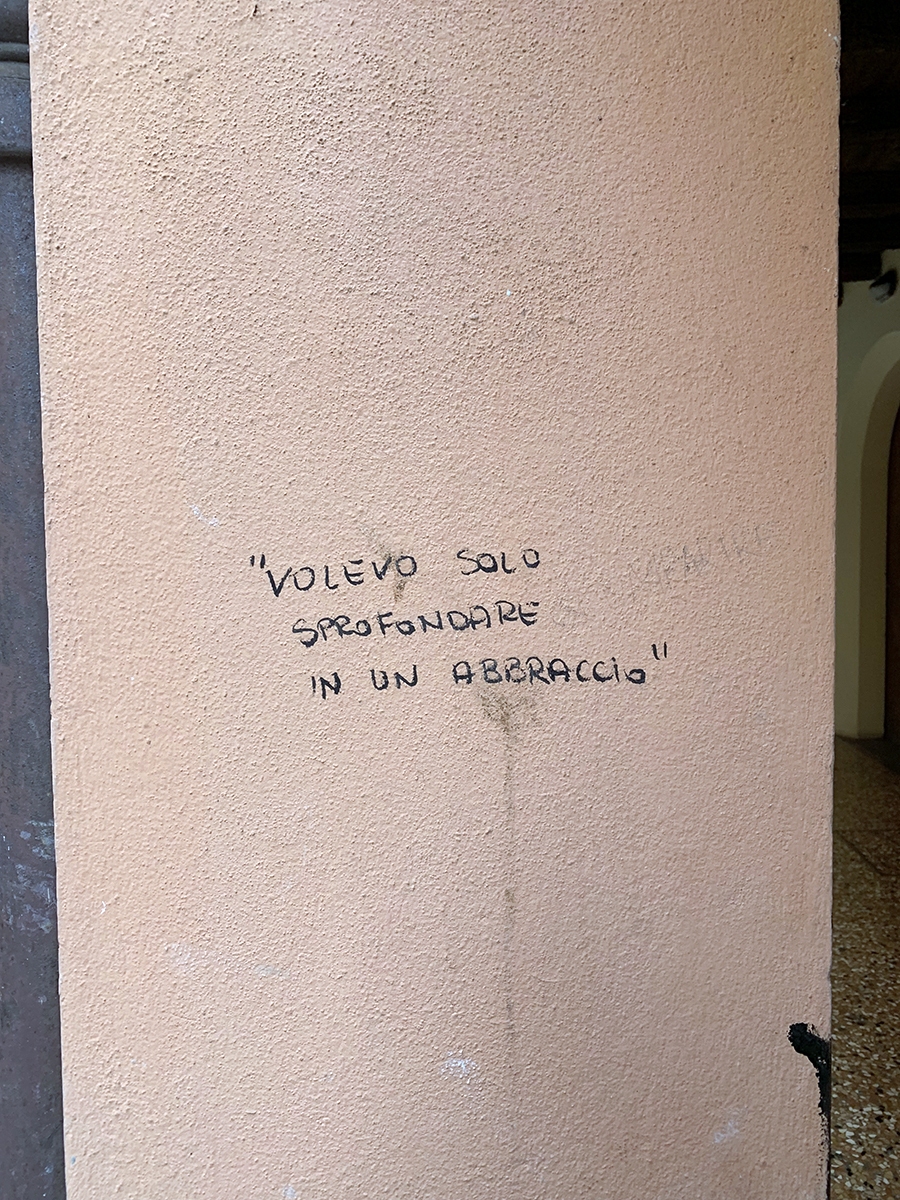 "VOLEVO SOLO
SPROFONDARE
IN UN ABBRACCIO"